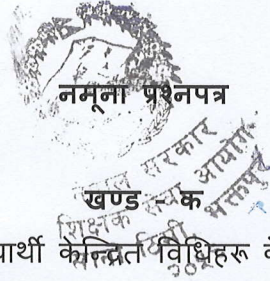 नमूना प्रश्नपत्र
खण्ड - क
नेपाल सरकार
शिक्षक सेवा आयोग
भक्तपुर
यार्थी केन्द्रित विधिहरू